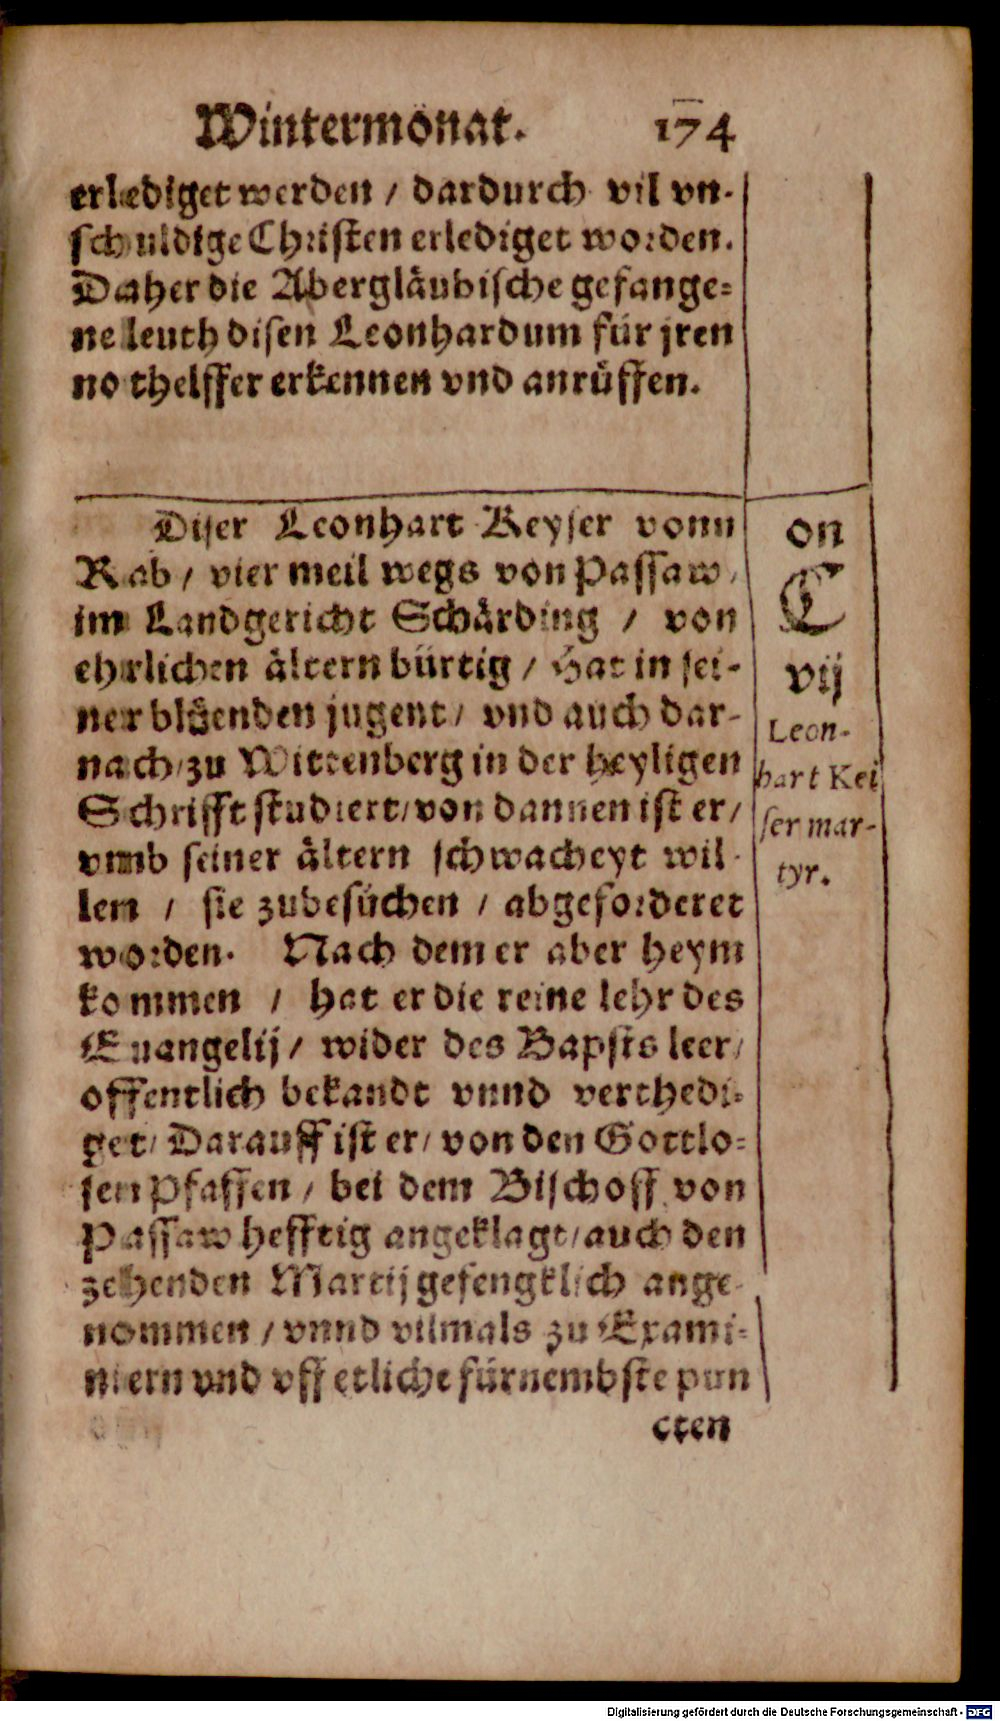 Wintermonat. 174
erlediget werden / dardurch vil vn-
schuldige Christen erlediget worden.
Daher die Abergläubische gefange-
ne leuth disen Leonhardum für jren
nothelffer erkennen vnd anrüffen.
Diser Leonhart Keyser vonn
Rab / vier meil wegs von Passaw /
im Landgericht Schärding / von
ehrlichen ältern bürtig / hat in sei-
ner blüenden jugent / vnd auch dar-
nach / zu Wittenberg in der heyligen
Schrifft studiert / von dannen ist er /
vmb seiner ältern schwacheyt wil-
len / sie zubesüchen / abgeforderet
worden. Nach dem er aber heym
kommen / hat er die reine lehr des
Euangelij / wider des Bapsts leer /
offentlich bekandt vnnd verthedi-
get / Darauff ist er / von den Gottlo-
sen Pfaffen / bei dem Bischoff von
Passaw hefftig angeklagt / auch den
zehenden Martij gefengklich ange-
nommen / vnnd vilmals zu Exami-
niern vnd vff etliche fürnembste pun
cten
on
C
vij
Leon-
hart Kei
ser mar-
tyr.
Digitalisierung gefördert durch die Deutsche Forschungsgemeinschaft - DFG